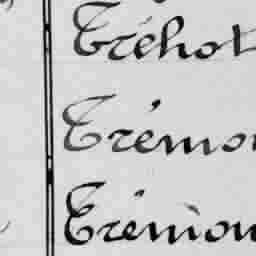 Tréhot
Trémo
Trémou